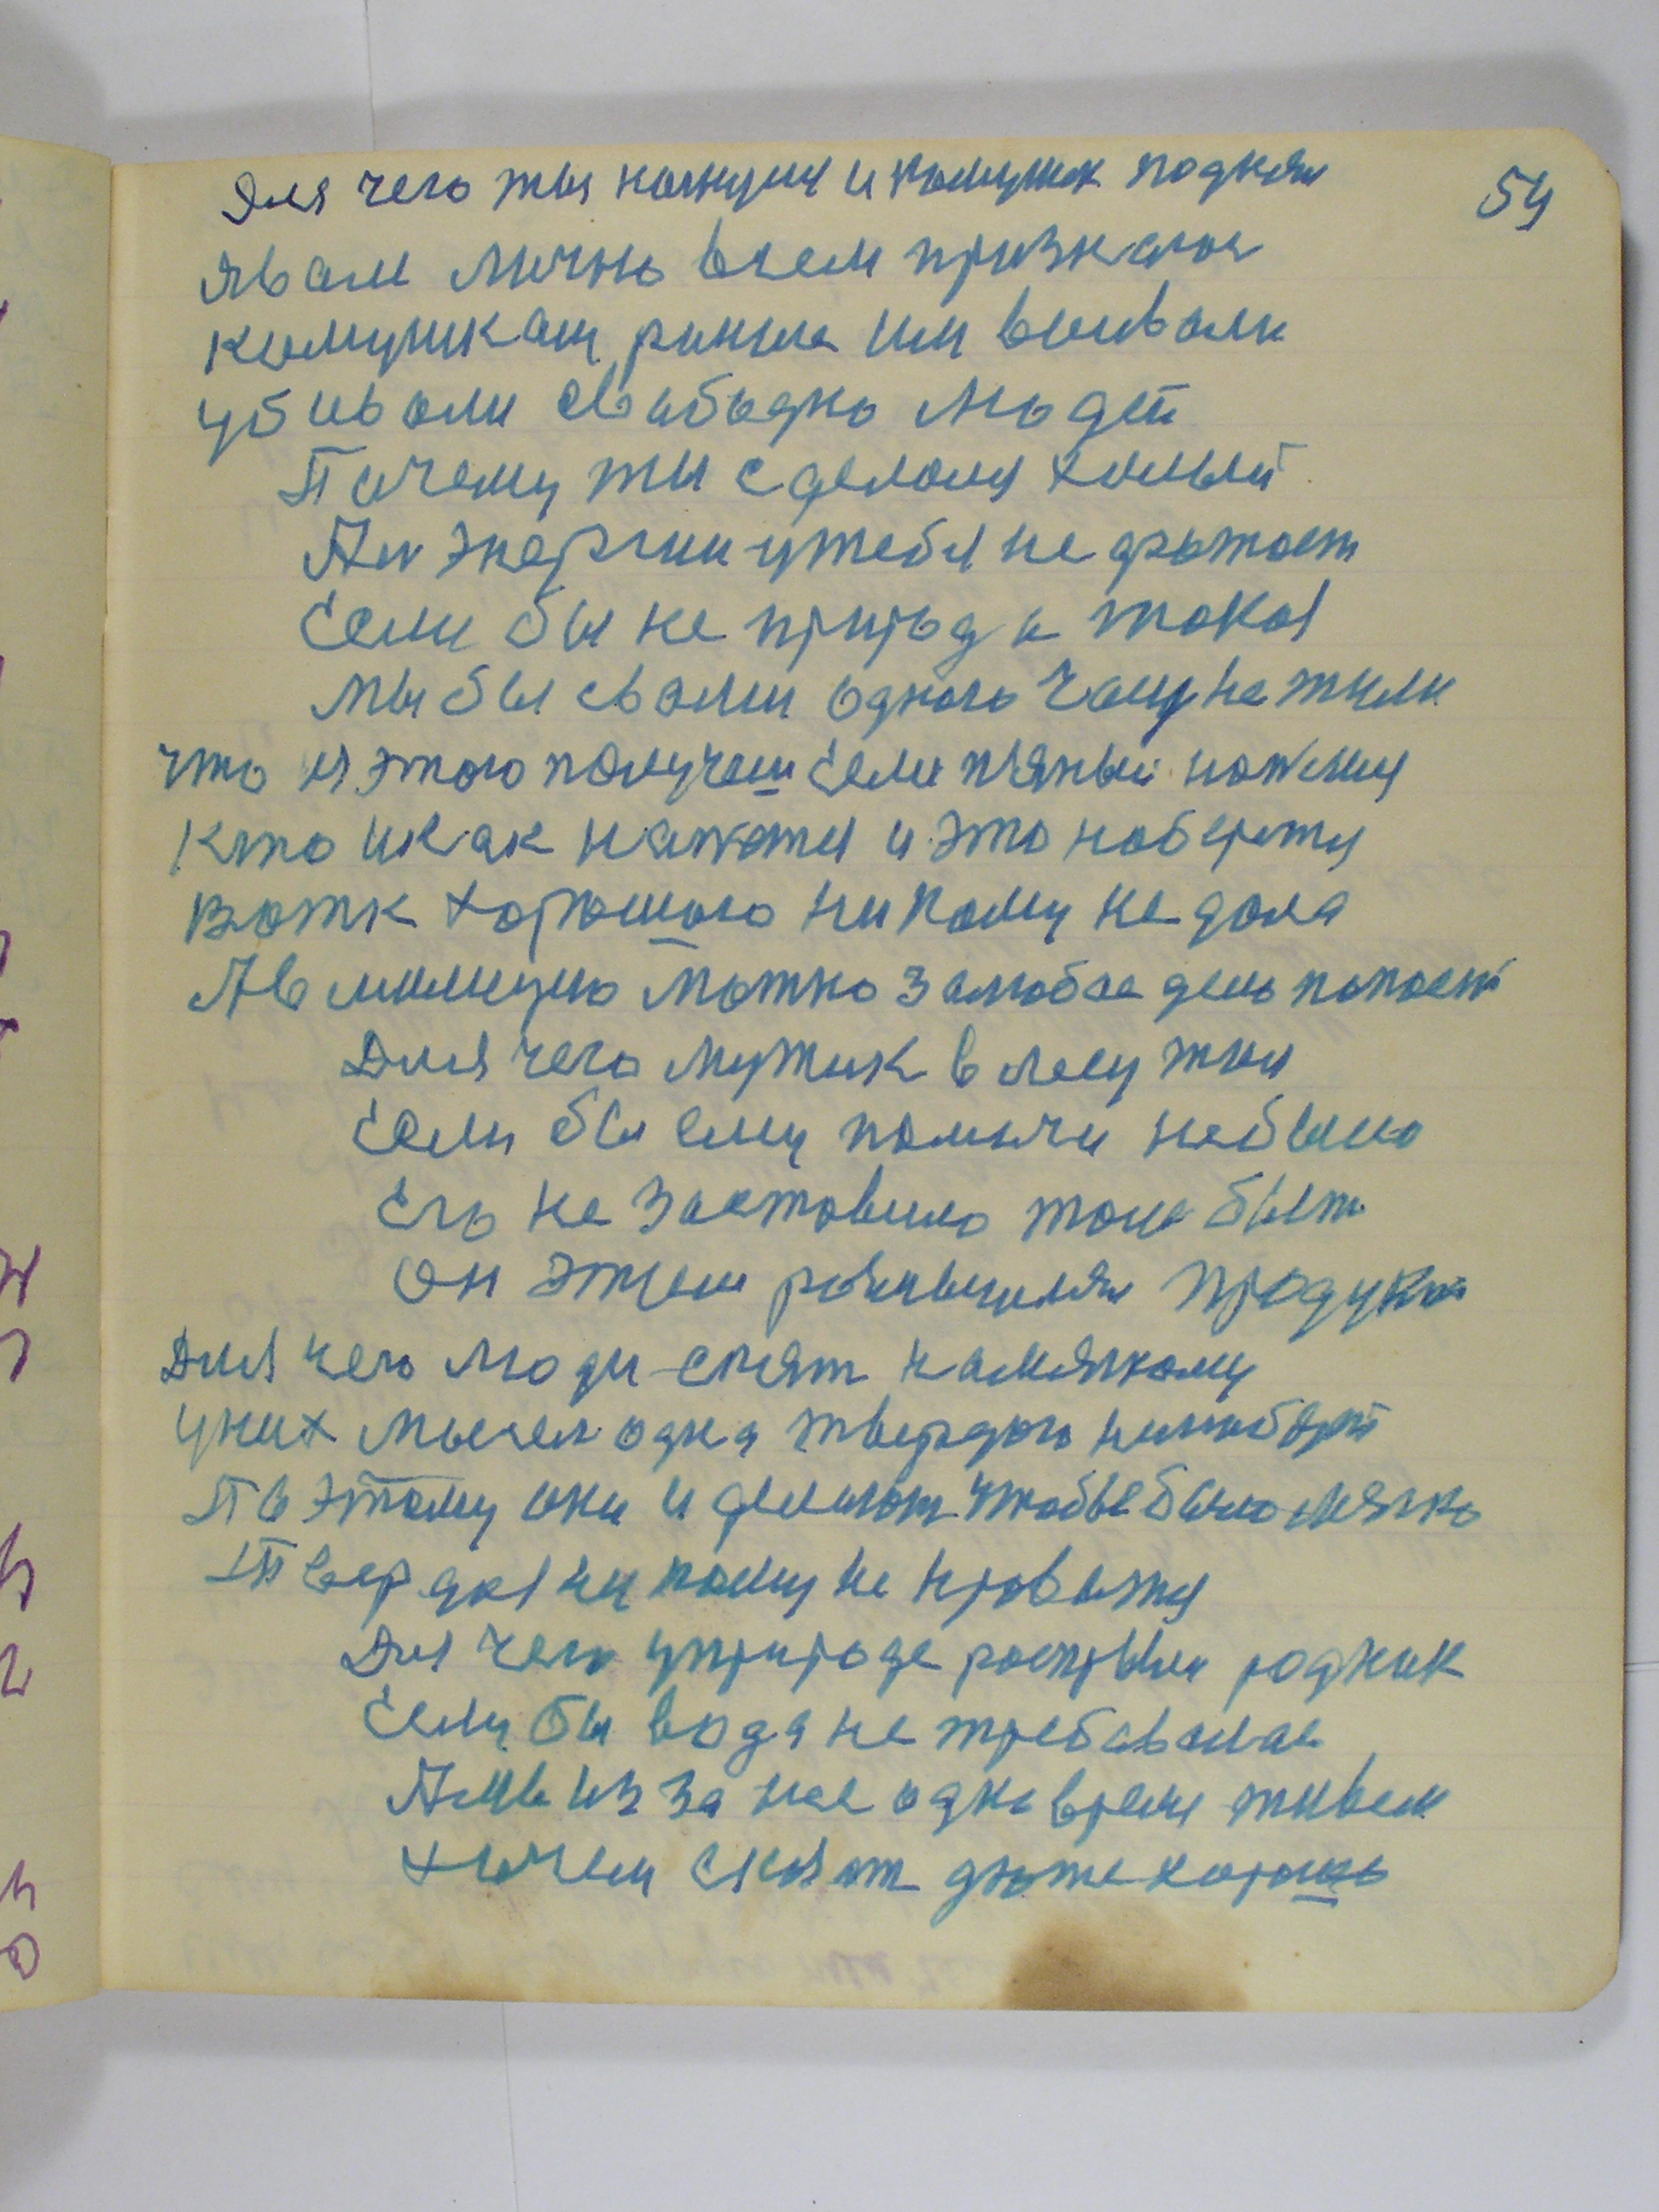 Для чего ты нагнулся и камушек поднял 54
я вам лично всем признаюсь
камушкам раньше им воивали
убивали свабодно людей
Пачему ты сделался хилый
Ан энергии у тебя не хватает
Если бы не природа такая
мы бы с вами одного часу не жили
что из этого получеш Если пьяный
кто и как и это наберется
хорошого ни кому не дала
А в милицию можно за любое день попасть
Для чего мужик в лесу жил
Если бы ему помочи небыло
Его не заставило там быть
Он этим продукт
Для чего люди спят на мягкому
у них мысел одна твердого нелюбят
По этому они и делают чтобы было мягко
Твердая ни кому не нравится
Для чего у природе роскрыли родник
Если бы вода не требовалас
А мы из за нее одно время живем
хочем сказат даже хорошо